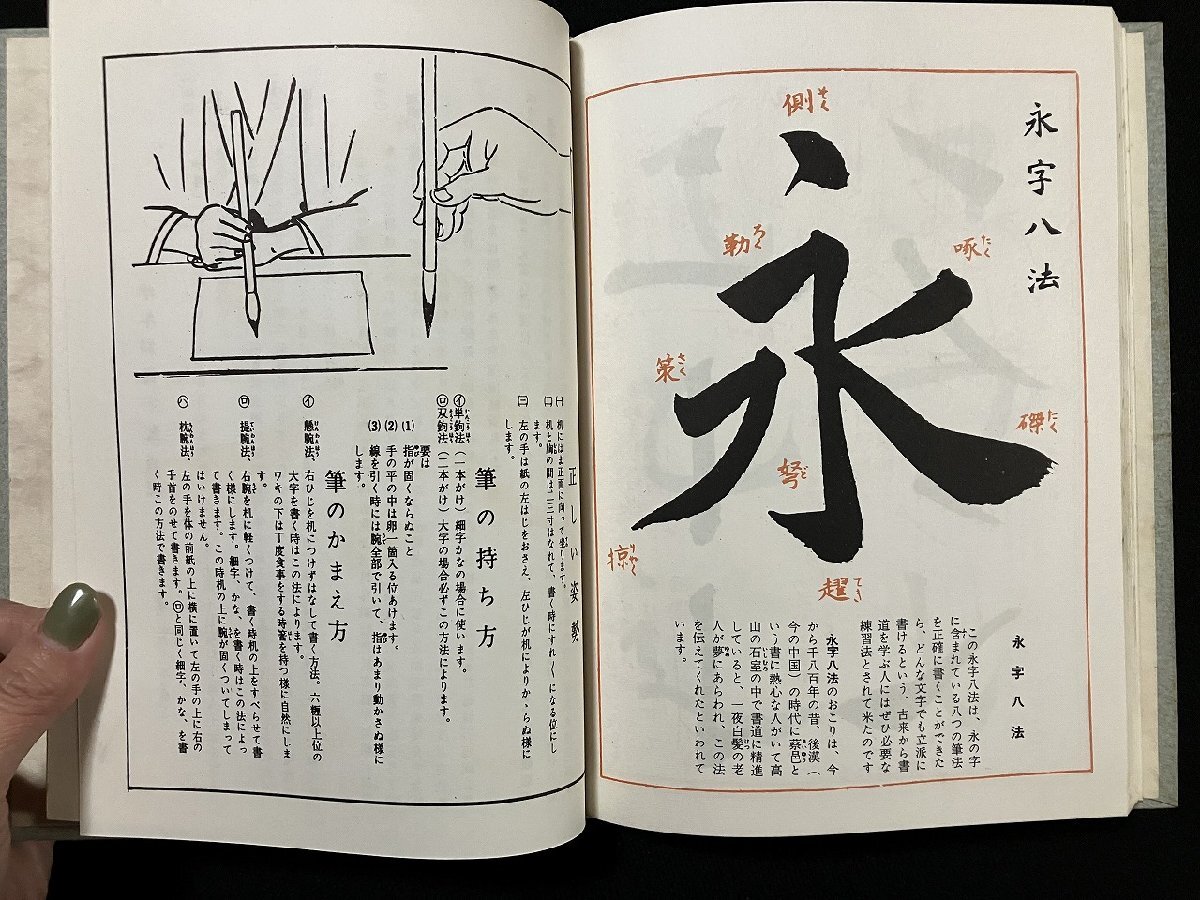 永字八法
側 そく
勒 ろく
啄 たく
策 さく
磔 たく
努 ど
掠 りやく
趯 てき
永字八法
この永字八法は、永の字
に含まれている八つの筆法
を正確に書くことができた
ら、どんな文字でも立派に
書けるという、古来から書
道を学ぶ人にはぜひ必要な
練習法とされて来たのです
永字八法のおこりは、今
から千八百年の昔 後漢(
今の中国)の時代に蔡邑と
いう書に熱心な人がいて高
山の石室の中で書道に精進
していると、一夜白髪の老
人が夢にあらわれ、この法
を伝えてくれたといわれて
います。
正しい姿勢
㈠ 机にはま正面に向って坐ります。
㈡ 机と胸の間は二三寸はなれて、書く時にすれ〱になる位にし
ます。
㈢ 左の手は紙の左はじをおさえ、左ひじが机によりか、らぬ様に
します。
筆の持ち方
㋑ 単鈎法(一本がけ)細字かなの場合に使います。
㋺ 双鈎法(二本がけ)大字の場合必ずこの方法によります。
要は
(1) 指が固くならぬこと
(2) 手の平の中は卵一箇入る位あけます。
(3) 線を引く時には腕全部で引いて、指はあまり動かさぬ様に
します。
筆のかまえ方
㋑ 懸腕法、右ひじを机につけずはなして書く方法。六糎以上位の
大字を書く時はこの法によります。
ワキの下は丁度食事をする時箸を持つ様に自然にしま
す。
㋺ 提腕法、右腕を机に軽くつけて、書く時机の上をすべらせて書
く様にします。細字、かな、を書く時はこの法によっ
て書きます。この時机の上に腕が固くついてしまって
はいけません。
㋩ 枕腕法、左の手を体の前紙の上に横に置いて左の手の上に右の
手首をのせて書きます。㋺と同じく細字、かな、を書
く時この方法で書きます。